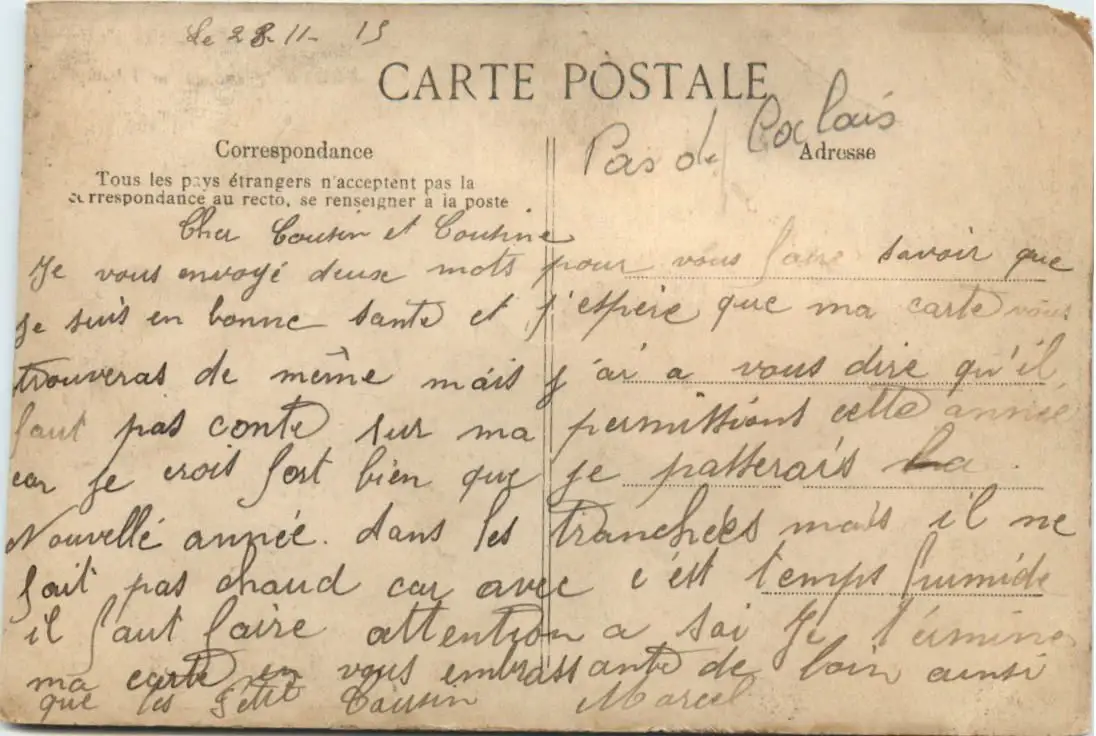 Le 28-11- 15
CARTE POSTALE
Pas de Calais
Correspondance
Adresse
Tous les pays étrangers n'acceptent pas la
correspondance au recto, se renseigner à la poste
Cher Cousin et Cousine
Je vous envoyé deux mots pour vous faire savoir que
je suis en bonne santé et j'espére que ma carte vous
trouveras de même mais j'ai a vous dire qu'il
faut pas conte sur ma permissions cette année
car je crois fort bien que je passerais la
Nouvellé année. dans les tranchées mais il ne
fait pas chaud car avec c'est temps humide
il faut faire attention a soi Je términe
ma carte en vous embrassante de loin ainsi
que les petit Cousin Marcel